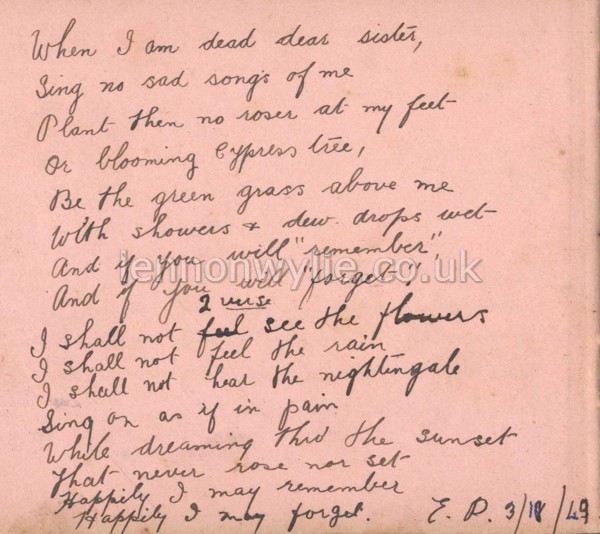 When I am dead dear sister,
Sing no sad songs of me
Plant then no roser at my feet
Or blooming Cypress tree,
Be the green grass above me
With showers & dew drops wet
And if you will "remember",
lennonwylie.co.uk
And if you will "forget".
2 verse
I shall not feel see the flowers
I shall not feel the rain
I shall not hear the nightingale
Sing on as if in pain
While dreaming thro the sunset
That never rose nor set
Happily I may remember
Happily I may forget. E. P. 3/18/49